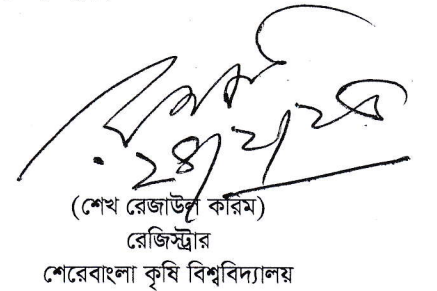 (শেখ রেজাউল করিম)
রেজিস্ট্রার
শেরেবাংলা কৃষি বিশ্ববিদ্যালয়